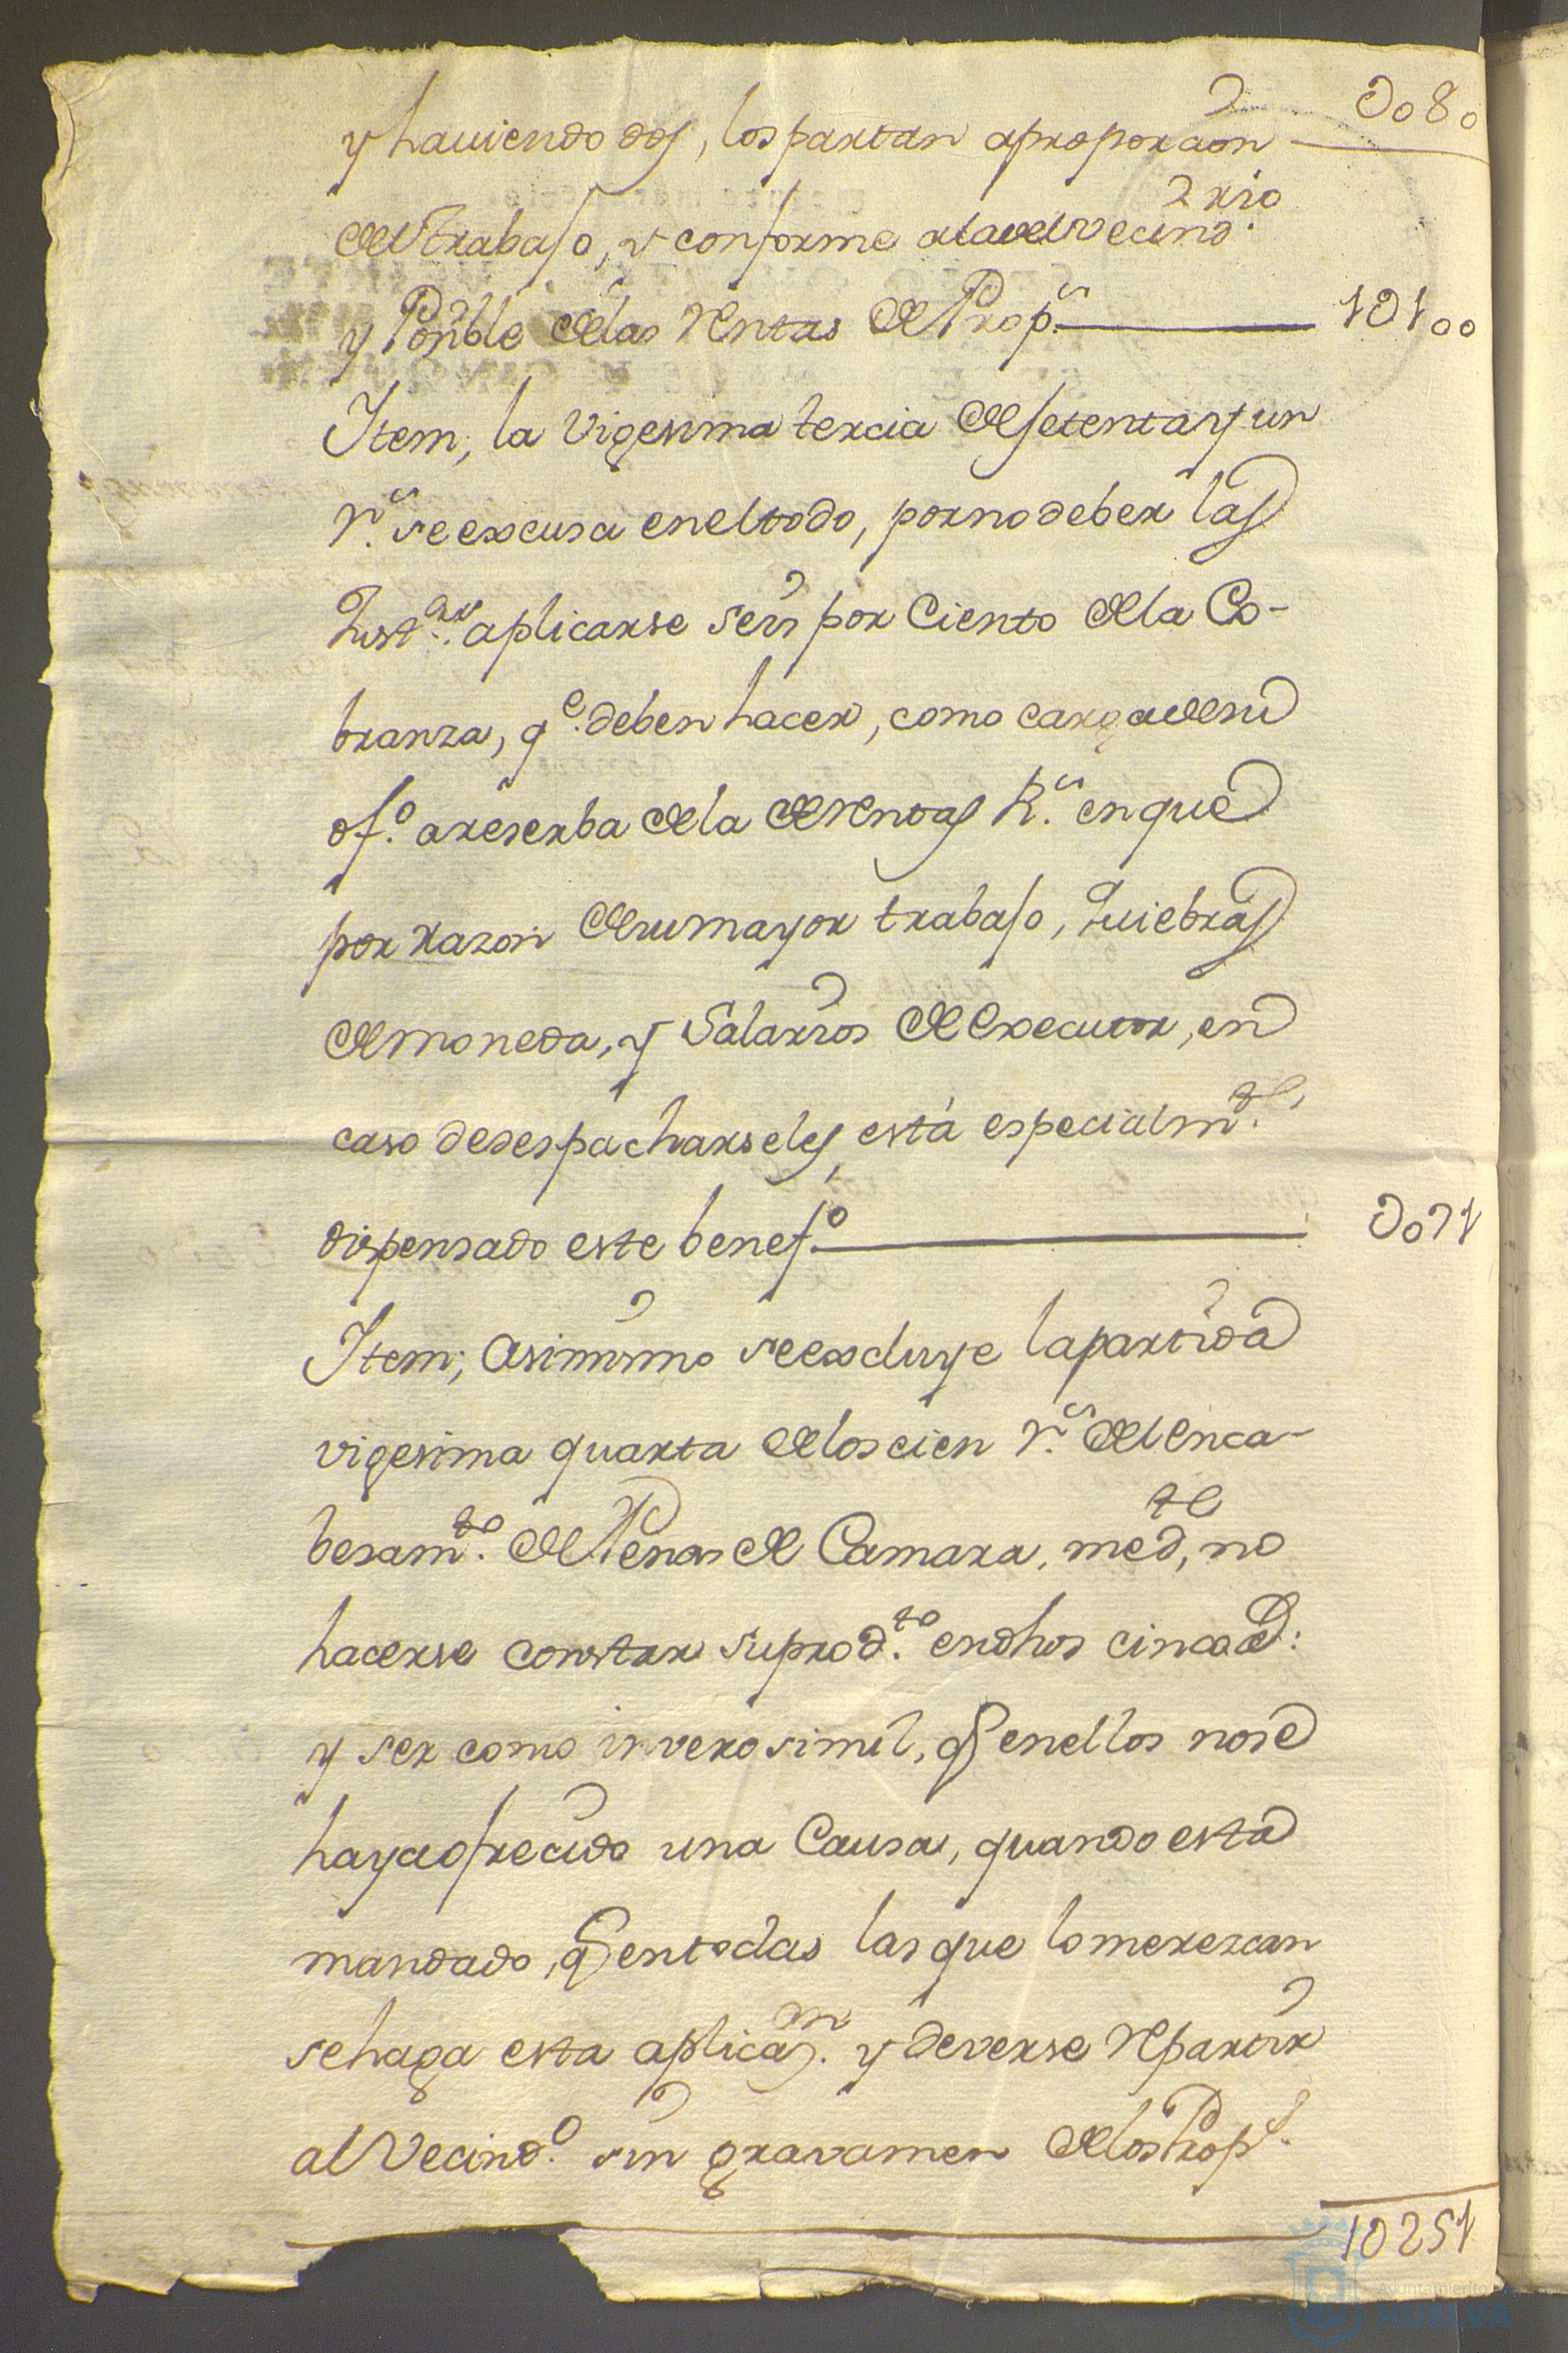 y haviendo dos, los partan a proporcion — Do80
del trabajo, y conforme a la del vecind.rio
y Ponble de las Rentas de Prop.s — 1D100
Item, la vigesima tercia de setenta y un
r.s se excusa en el todo, por no deber las
Just.as aplicarse seis por Ciento de la Co-
branza, q.e deben hacer, como carga de su
of.o a reserba de la de Rentas R.s en que
por razon de su mayor trabajo, quiebras
de moneda, y Salarios de Executor, en
caso de despacharseles, está especialm.te
dispensado este benef.o — Do71
Item; asimismo se excluye la partida
vigesima quarta de los cien r.s del enca-
besam.to de Penas de Camara, med.te no
hacerse constar su prod.to en dhos cinco a.s:
y ser como inverosimil, q en ellos no se
haya ofrecido una Causa, quando esta
mandado, q en todas las que lo merezcan
se haga esta aplicaz.on y deverse repartir
al Vecind.o sin gravamen de los Prop.s
1D251
Ayuntamiento de
HUELVA